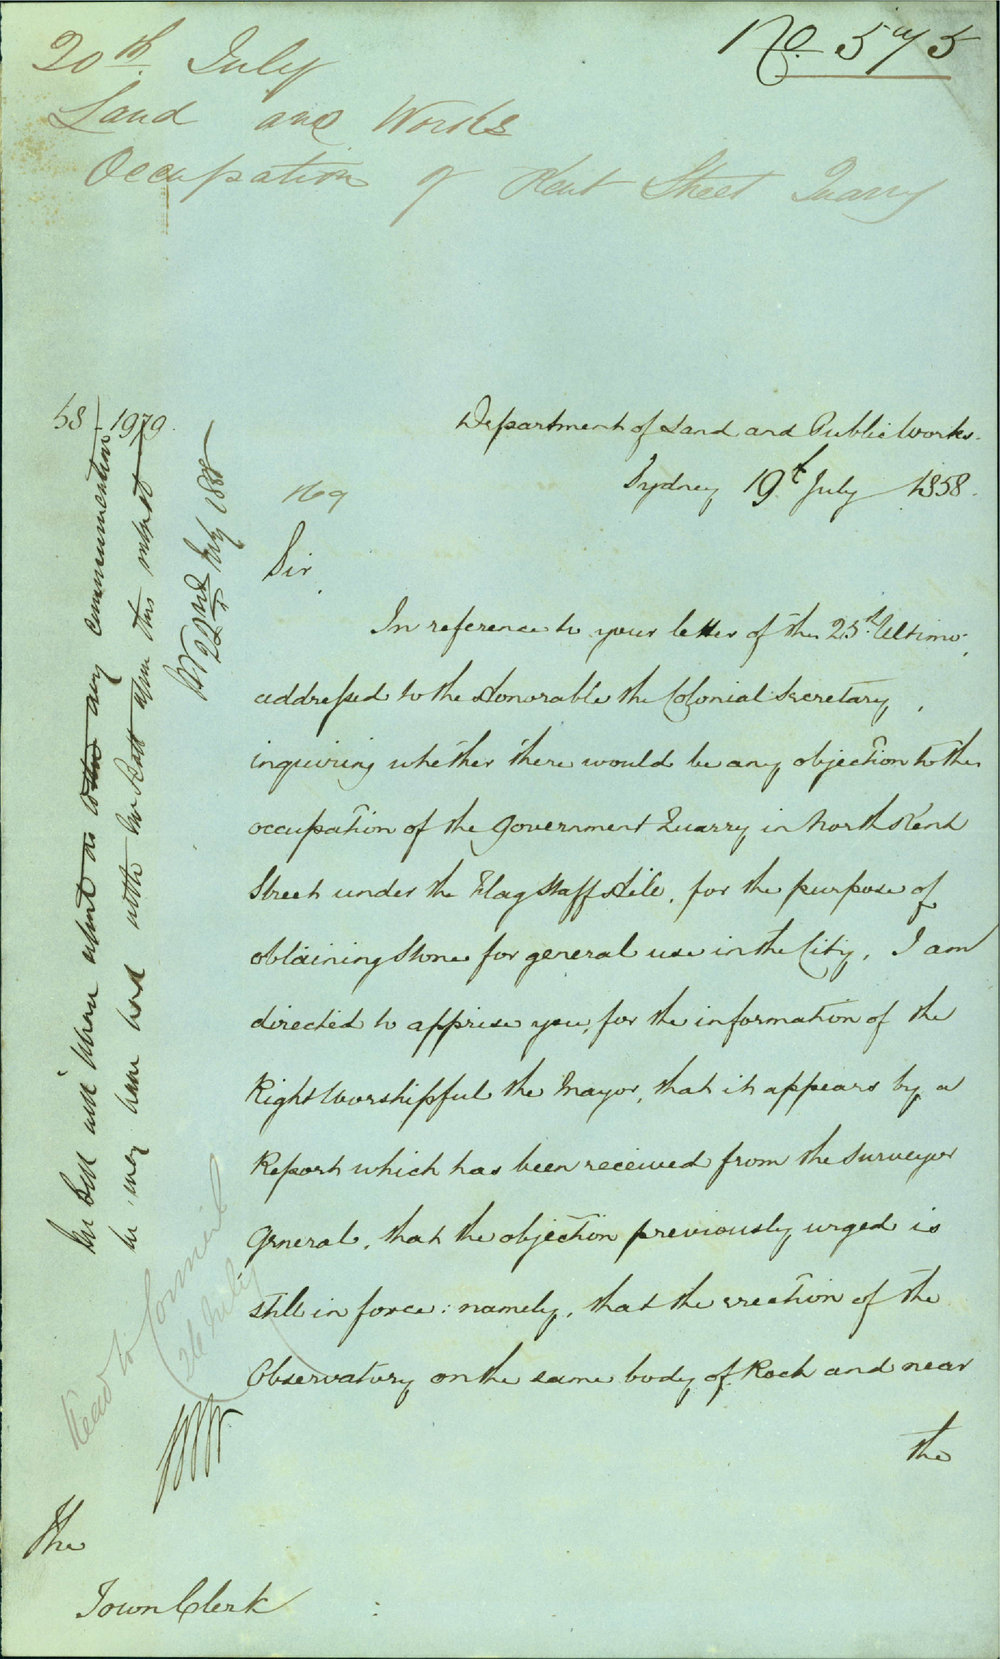 No. 575
20th July
Land and Works
Occupation of Kent Street Quarry
58-1979.
Department of Land and Public Works.
Sydney 19th July 1858.
169
Sir,
In reference to your letter of the 25th Ultimo,
addressed to the Honorable the Colonial Secretary,
inquiring whether there would be any objection to the
occupation of the Government Quarry in North Kent
Street under the Flag Staff Hill, for the purpose of
obtaining Stone for general use in the City, I am
directed to apprise you, for the information of the
Right Worshipful the Mayor, that it appears by a
Report which has been received from the Surveyor
General, that the objection previously urged is
still in force: namely, that the erection of the
Observatory on the same body of Rock and near
the
The
Town Clerk
Mr Bell will learn what as any communication
he may have had with Mr Scott upon this subject
22nd July
Read to Council
26 July